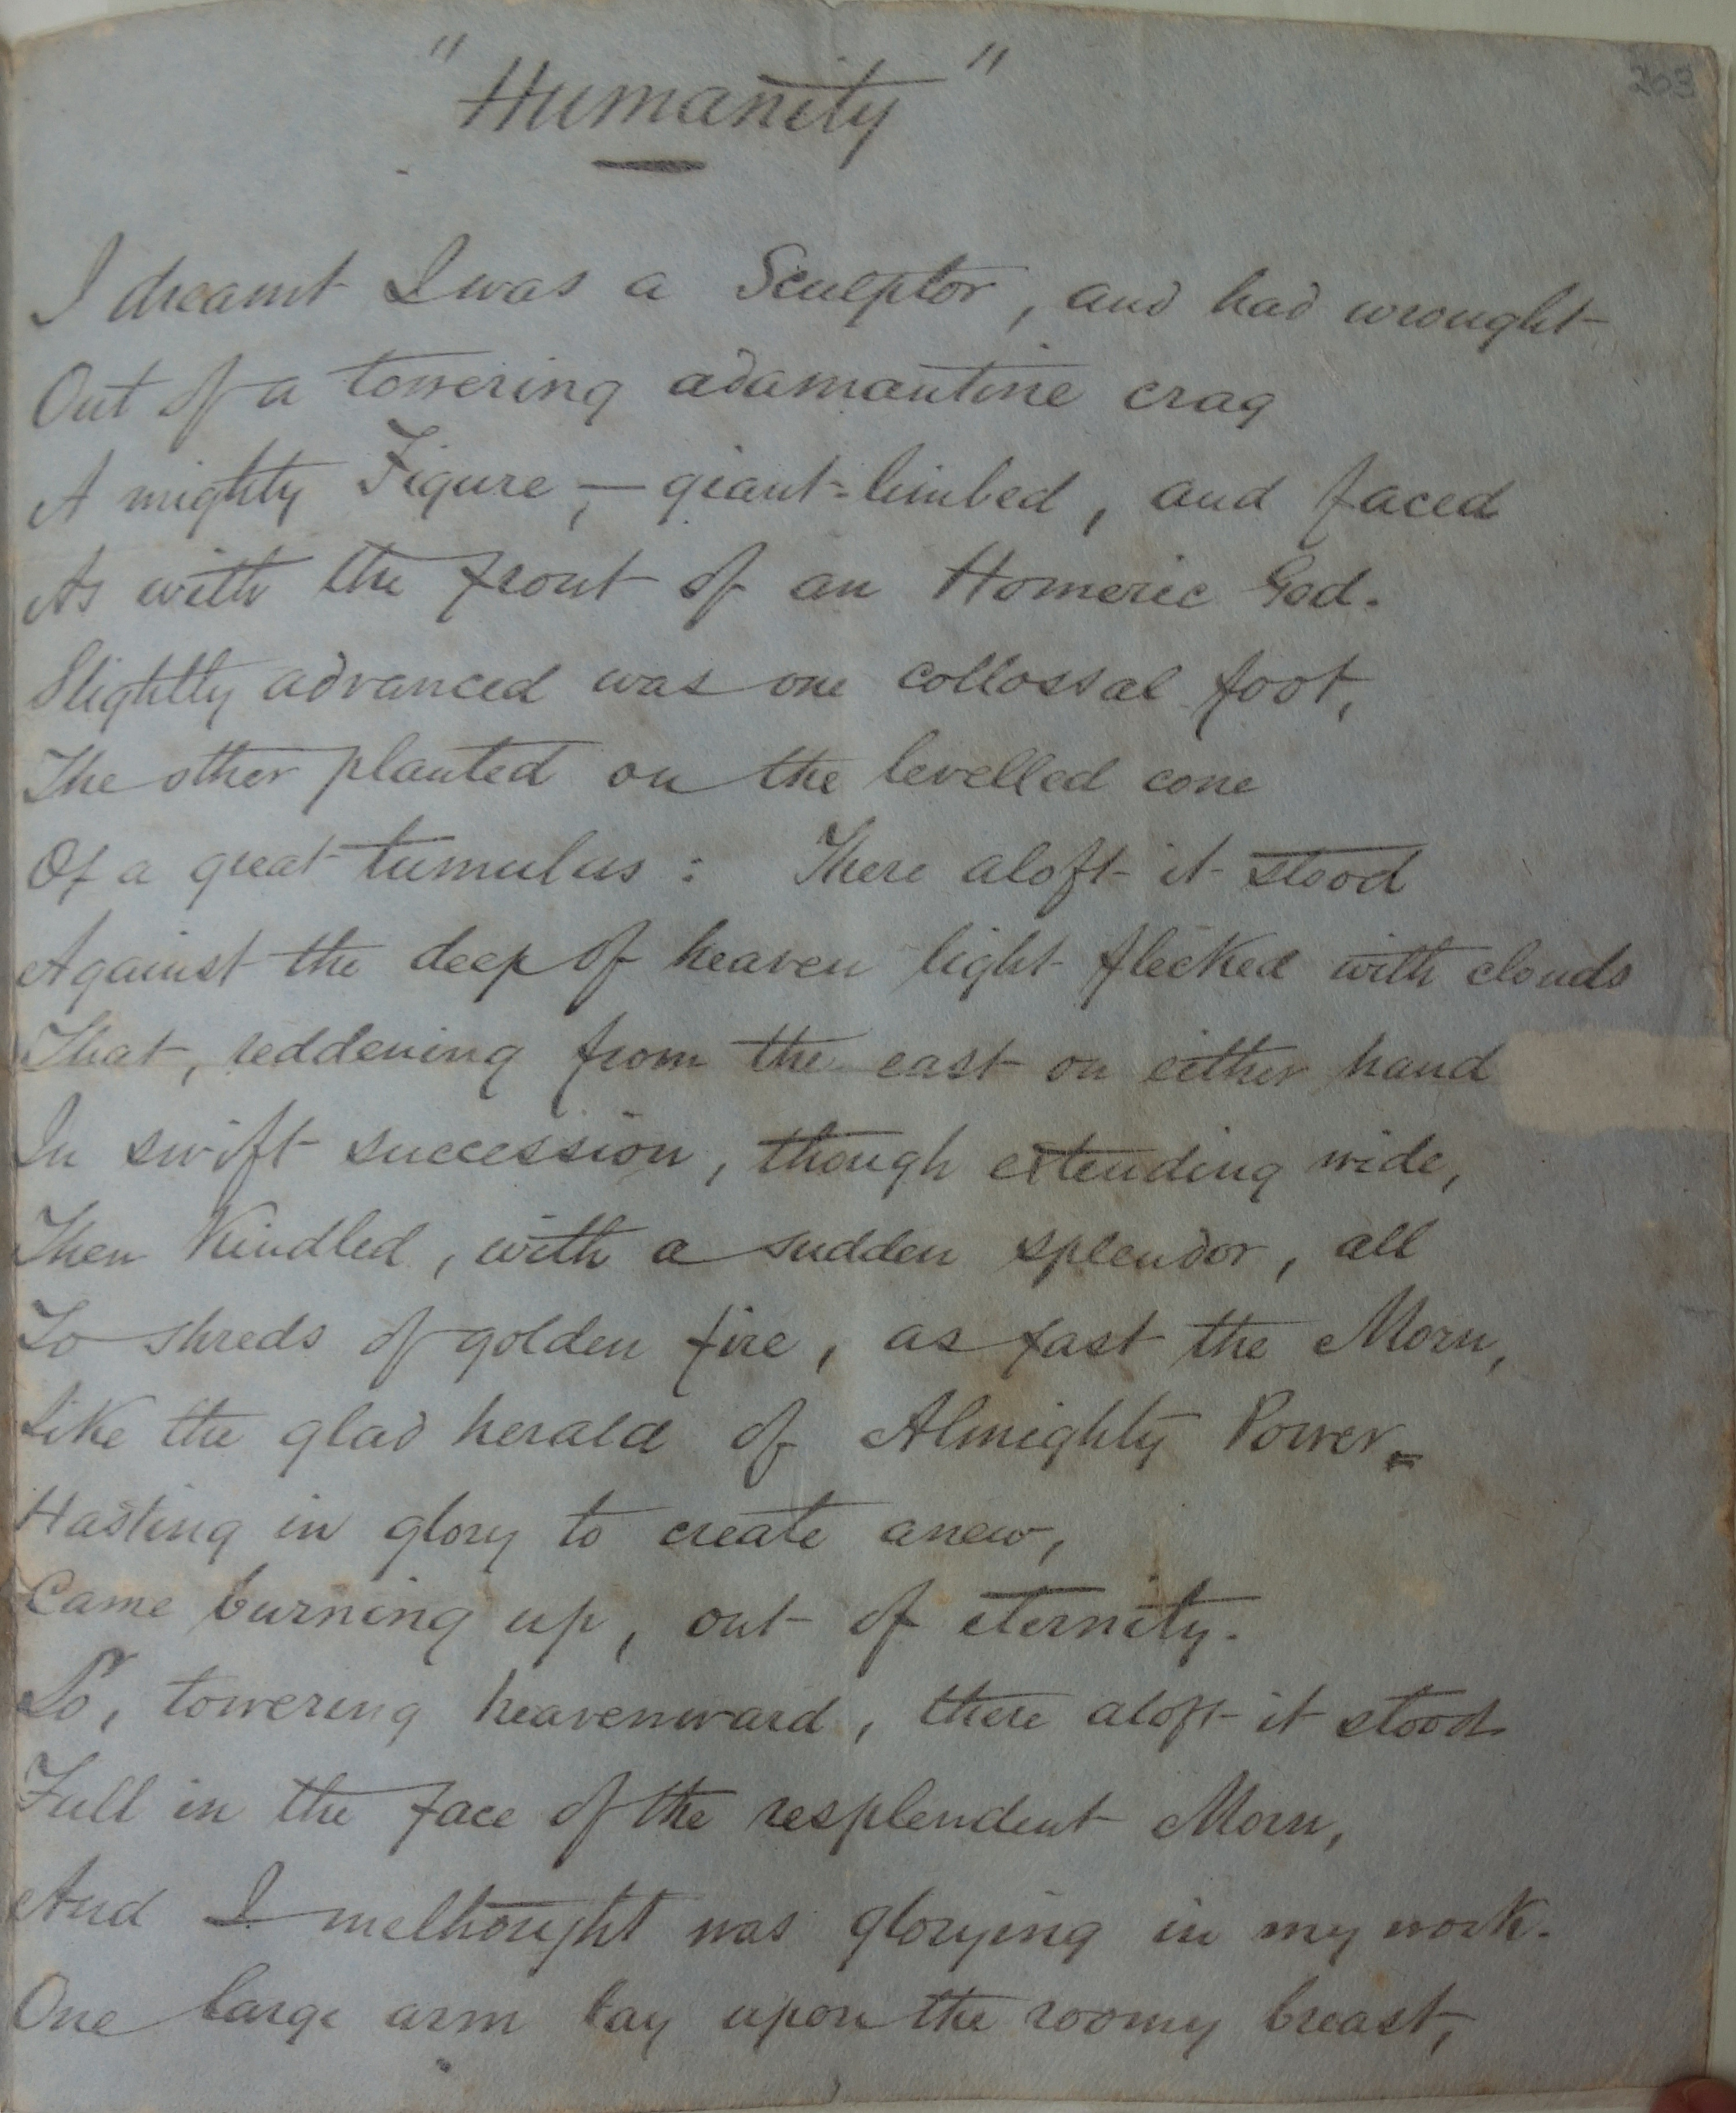 "Humanity"
263
I dreamt I was a Sculptor, and had wrought
Out of a towering adamantine crag
A mighty Figure, — giant-limbed, and faced
As with the front of an Homeric God.
Slightly advanced was one collossal foot,
The other planted on the levelled cone
Of a great tumulus: There aloft it stood
Against the deep of heaven light flecked with clouds
That, reddening from the east on either hand
In swift succession, though extending wide,
Then Kindled, with a sudden splendor, all
To shreds of golden fire, as fast the Morn,
Like the glad herald of Almighty Power
Hasting in glory to create anew,
Came burning up, out of eternity.
So, towering heavenward, there aloft it stood
Full in the face of the resplendent Morn,
And I methought was glorying in my work.
One large arm lay upon the roomy breast,